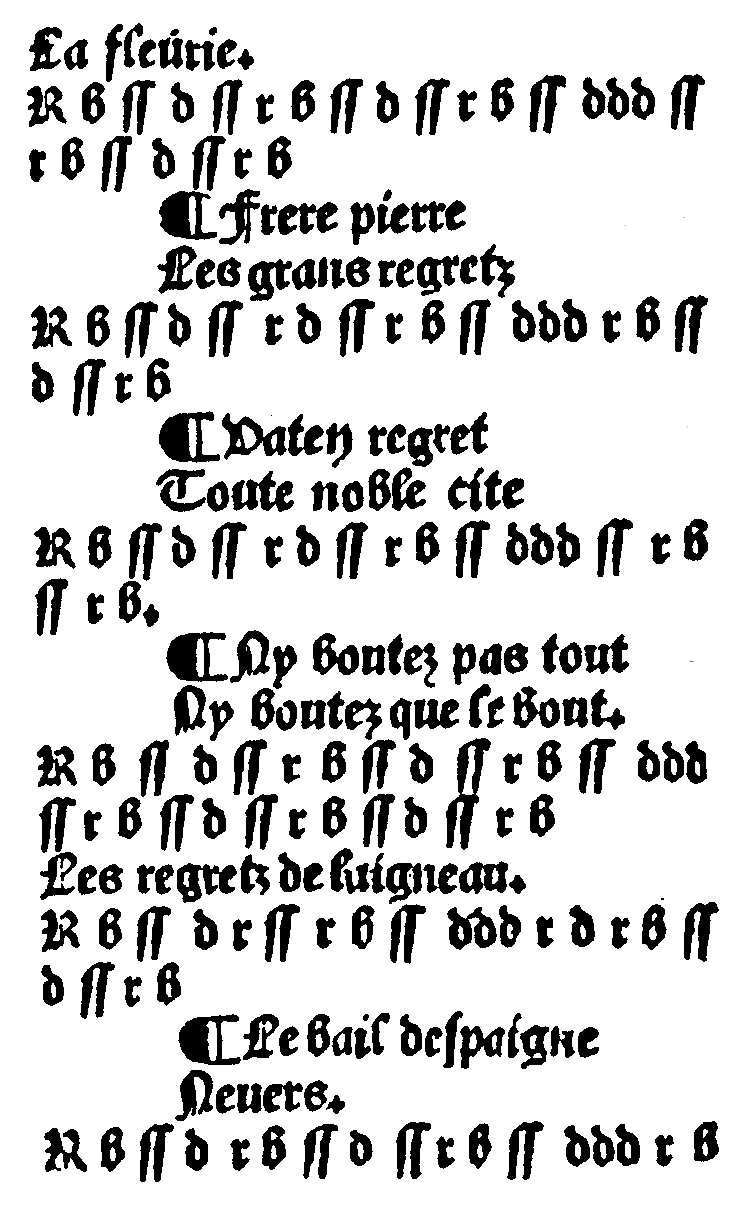 La fleurie.
R b ſſ d ſſ r b ſſ d ſſ r b ſſ ddd ſſ
r b ſſ d ſſ r b
¶ Frere pierre
Les grans regretz
R b ſſ d ſſ r d ſſ r b ſſ ddd r b ſſ
d ſſ r b
¶ Vaten regret
Toute noble cite
R b ſſ d ſſ r d ſſ r b ſſ ddd ſſ r b
ſſ r b.
¶ Ny boutez pas tout
Ny boutez que le bout.
R b ſſ d ſſ r b ſſ d ſſ r b ſſ ddd
ſſ r b ſſ d ſſ r b ſſ d ſſ r b
Les regretz de luigneau.
R b ſſ d r ſſ r b ſſ ddd r d r b ſſ
d ſſ r b
¶ Le bail deſpaigne
Neuers.
R b ſſ d r b ſſ d ſſ r b ſſ ddd r b